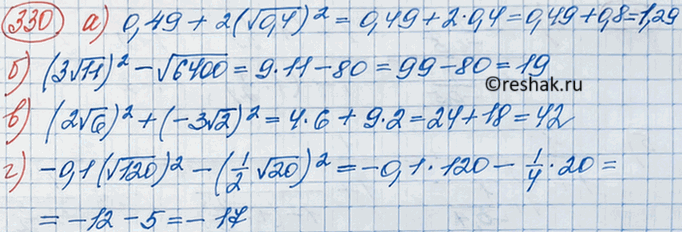 330 а) 0,49 + 2(√0,4)² = 0,49 + 2·0,4 = 0,49 + 0,8 = 1,29
б) (3√11)² − √6400 = 9·11 − 80 = 99 − 80 = 19
©reshak.ru
в) (2√6)² + (−3√2)² = 4·6 + 9·2 = 24 + 18 = 42
г) −0,1(√120)² − (1/2 √20)² = −0,1·120 − 1/4·20 =
= −12 − 5 = −17